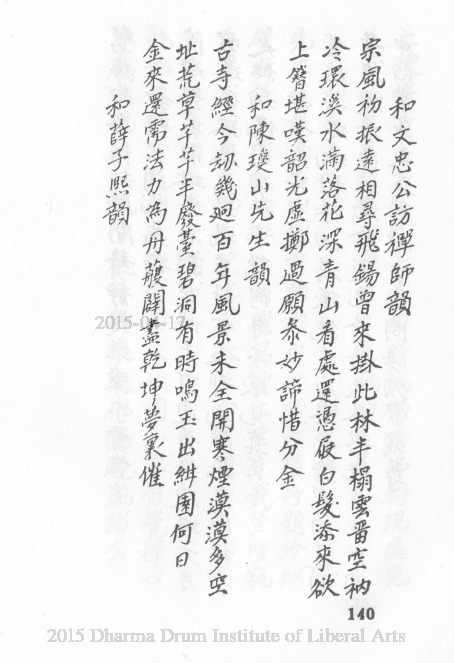 和文忠公訪禪師韻
宗風初振遠相尋飛錫曾來掛此林半榻雲番空衲
冷環溪水滿落花深青山看處還憑屐白髮添來欲
上簪堪嘆韶光虛擲過願參妙諦惜分金
和陳瓊山先生韻
古寺經今劫幾廻百年風景未全開寒煙漠漠多空
址荒草芊芊半廢臺碧洞有時鳴玉出紺園何日
金來還需法力為丹艧闢盡乾坤夢裏催
和薛子熙韻
140
2015 Dharma Drum Institute of Liberal Arts